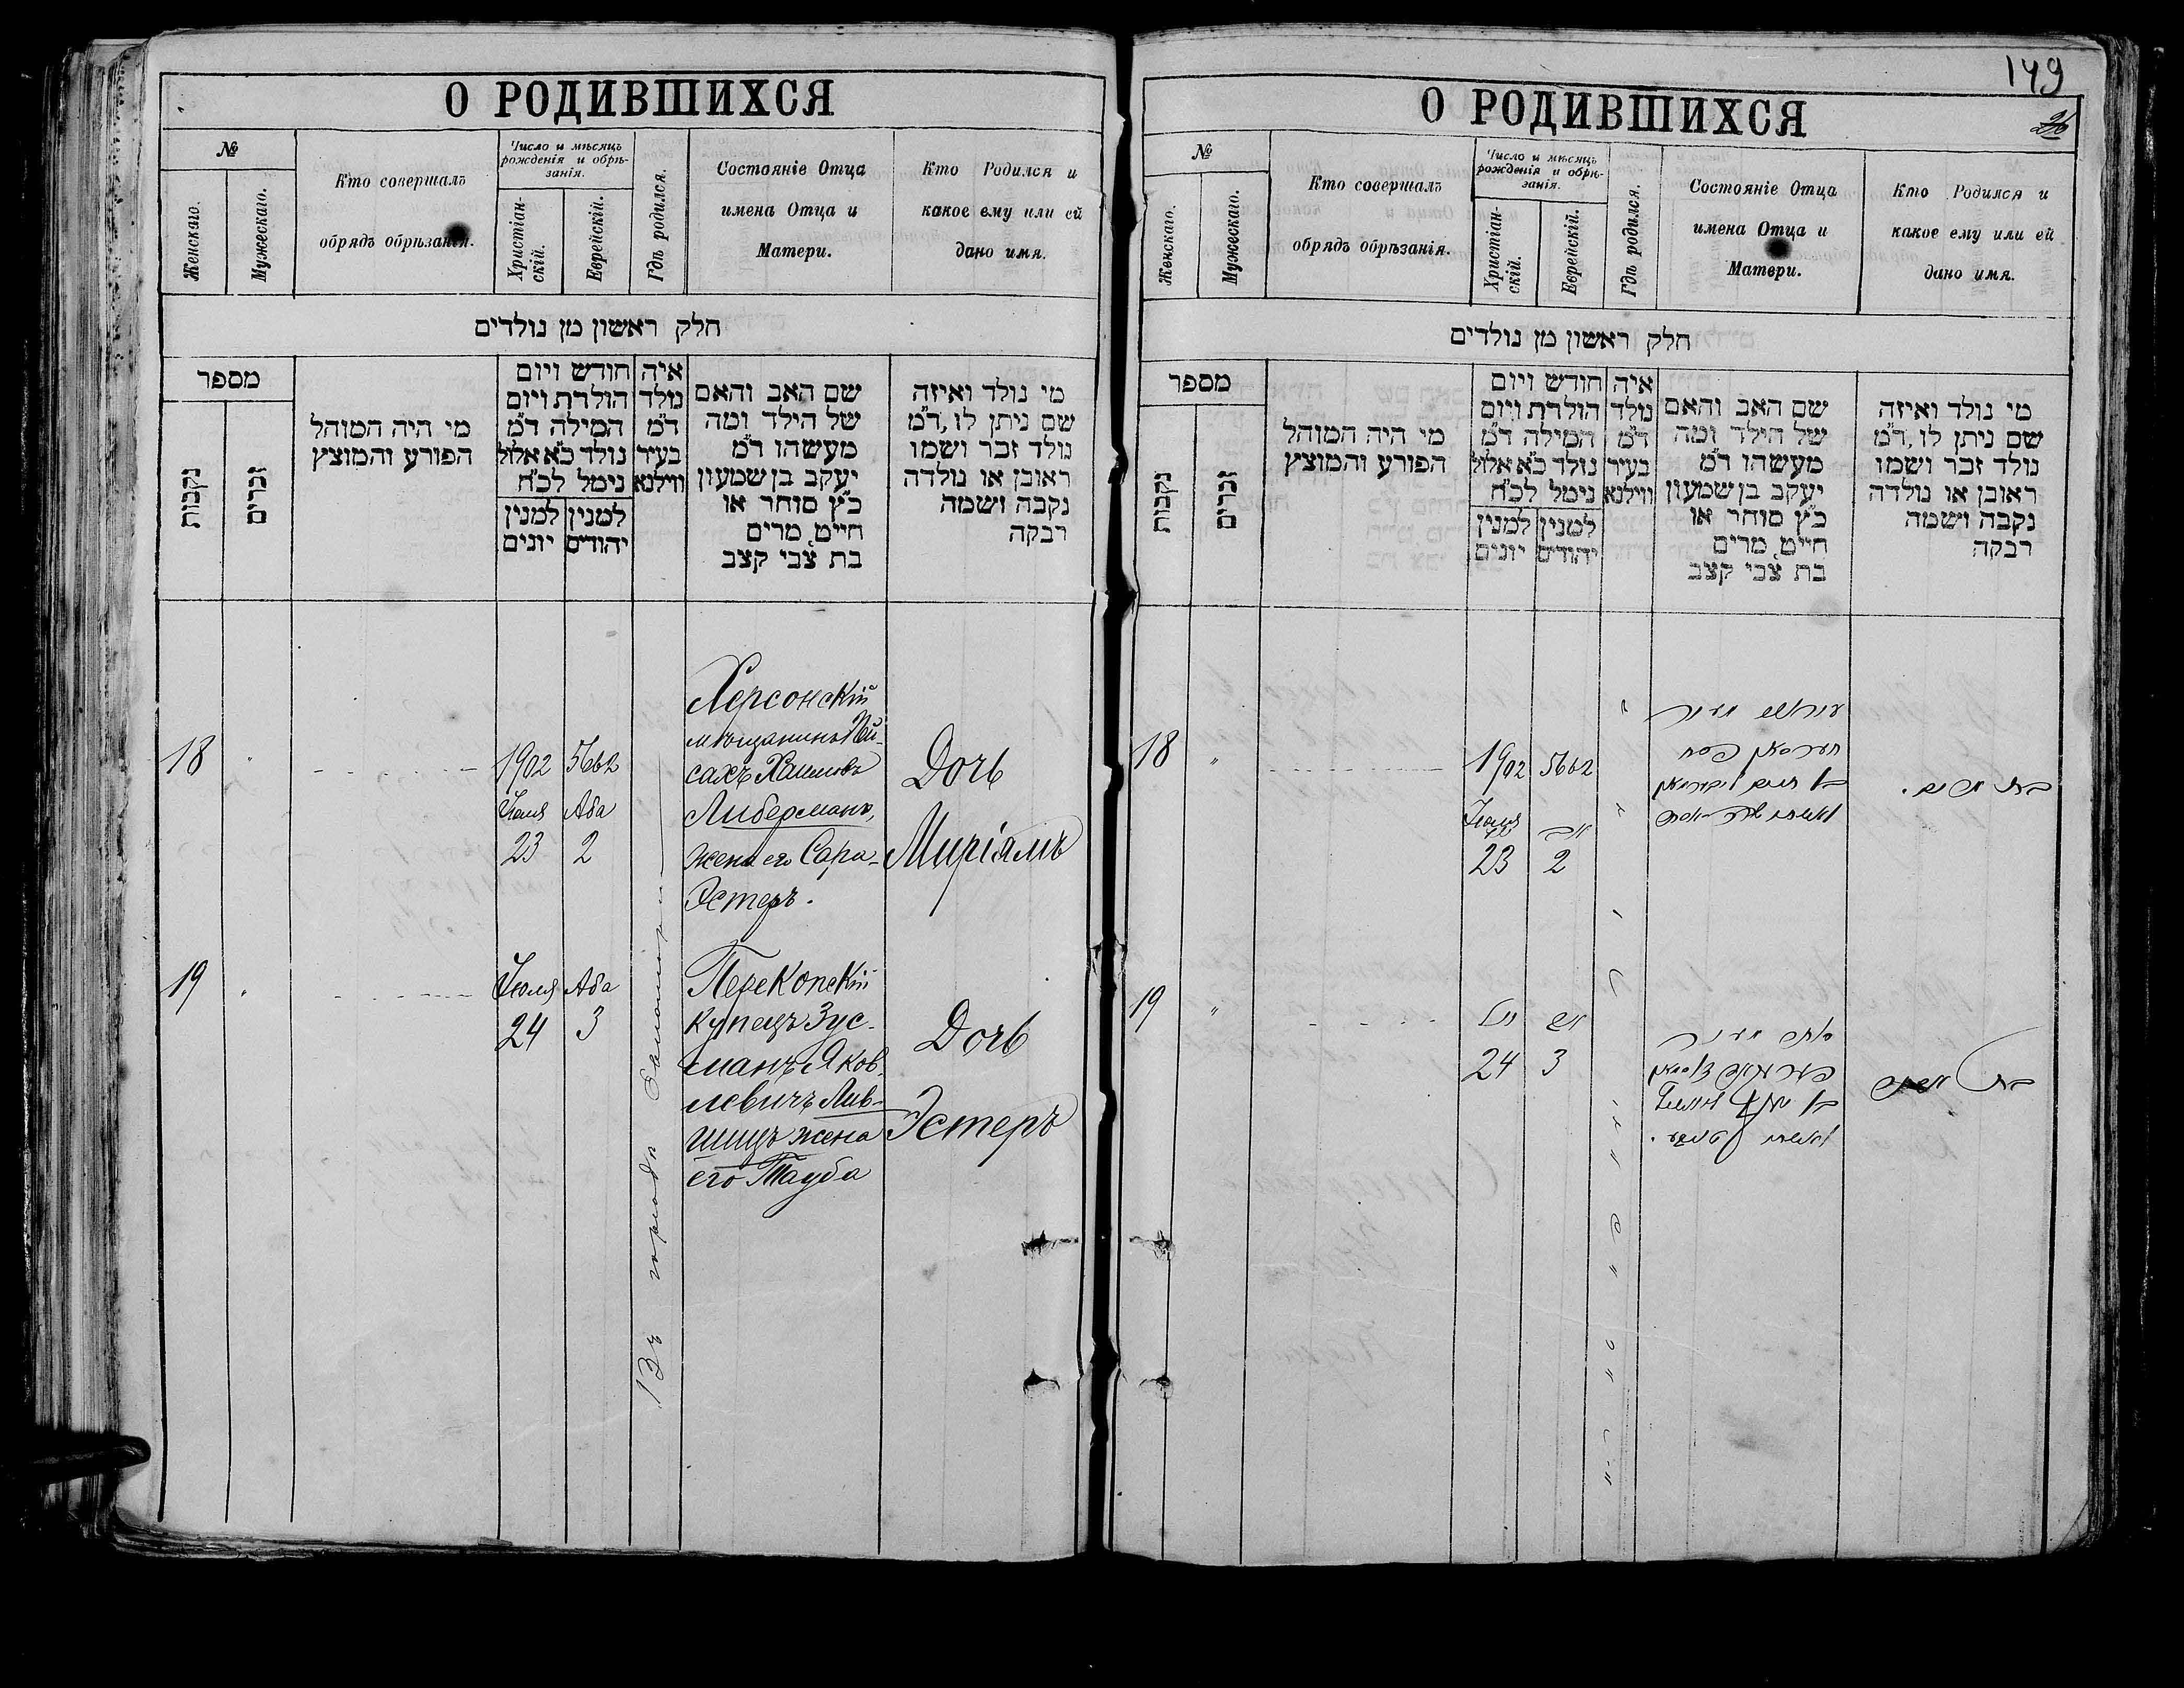 О РОДИВШИХСЯ
№
Женскаго.
Мужескаго.
Кто совершалъ
обрядъ обрѣзанія.
Число и мѣсяцъ
рожденія и обрѣ-
занія.
Христіан-
скій.
Еврейскій.
Гдѣ родился.
Состояніе Отца
имена Отца и
Матери.
Кто Родился и
какое ему или ей
дано имя.
חלק ראשון מן נולדים
מספר
נקבות
זכרים
מי היה המוהל
הפורע והמוצץ
חודש ויום
הולדת ויום
המילה ד״מ
נולד כ״א אלול
נימל לכ״ח
למנין
יונים
למנין
יהודים
איה
נולד
ד״מ
בעיר
ווילנא
שם האב והאם
של הילד ומה
מעשהו ד״מ
יעקב בן שמעון
כ״ץ סוחר או
חייט, מרים
בת צבי קצב
מי נולד ואיזה
שם ניתן לו, ד״מ
נולד זכר ושמו
ראובן או נולדה
נקבה ושמה
רבקה
18
"
1902
Іюля
23
5662
Аба
2
Херсонскій
мѣщанинъ Пей-
сахъ Хаимовъ
Либерманъ,
жена его Сара-
Эстеръ.
Дочь
Миріямъ
19
"
Іюля
24
Аба
3
Перекопскій
купецъ Зус-
манъ Яков-
левичъ Лив-
шицъ жена
его Тауба
Дочь
Эстеръ
Въ городѣ
149
26
О РОДИВШИХСЯ
№
Женскаго.
Мужескаго.
Кто совершалъ
обрядъ обрѣзанія.
Число и мѣсяцъ
рожденія и обрѣ-
занія.
Христіан-
скій.
Еврейскій.
Гдѣ родился.
Состояніе Отца
имена Отца и
Матери.
Кто Родился и
какое ему или ей
дано имя.
חלק ראשון מן נולדים
מספר
נקבות
זכרים
מי היה המוהל
הפורע והמוצץ
חודש ויום
הולדת ויום
המילה ד״מ
נולד כ״א אלול
נימל לכ״ח
למנין
יונים
למנין
יהודים
איה
נולד
ד״מ
בעיר
ווילנא
שם האב והאם
של הילד ומה
מעשהו ד״מ
יעקב בן שמעון
כ״ץ סוחר או
חייט, מרים
בת צבי קצב
מי נולד ואיזה
שם ניתן לו, ד״מ
נולד זכר ושמו
ראובן או נולדה
נקבה ושמה
רבקה
18
"
1902
Іюля
23
5662
אב
2
19
"
24
3